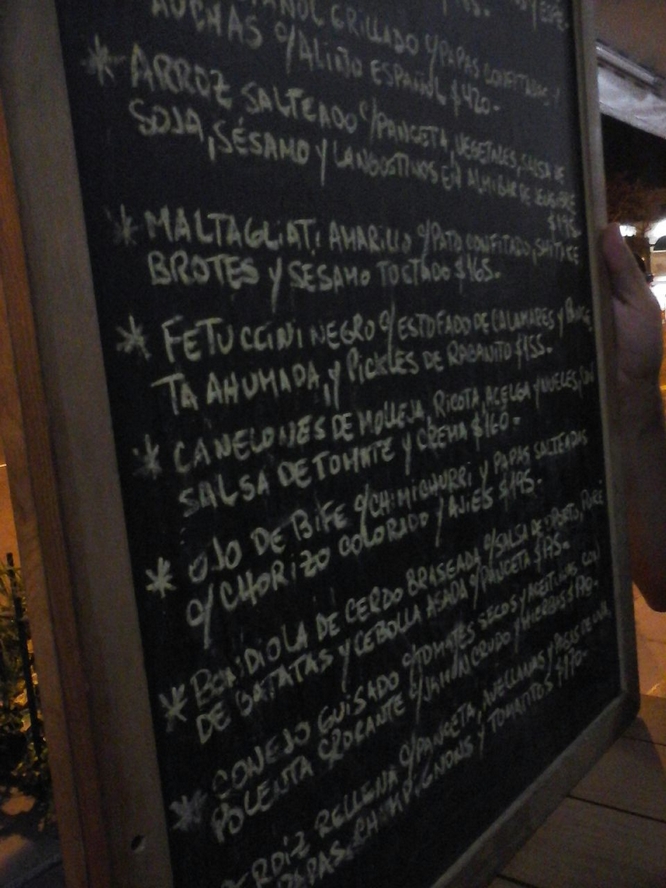 GRILLADO C/PAPAS CONFITADAS Y
C/ALIÑO ESPAÑOL $420-
* ARROZ SALTEADO C/PANCETA, VEGETALES, SALSA DE
SOJA, SÉSAMO Y LANGOSTINOS EN ALMIBAR DE
$195-
* MALTAGLIATI AMARILLO C/PATO CONFITADO,
BROTES Y SESAMO TOSTADO $165-
* FETUCCINI NEGRO C/ESTOFADO DE CALAMARES Y
TA AHUMADA, Y PICKLES DE RABANITO $155-
* CANELONES DE MOLLEJA, RICOTA, ACELGA Y NUECES, CON
SALSA DE TOMATE Y CREMA $160-
* OJO DE BIFE C/CHIMICHURRI Y PAPAS SALTEADAS
C/CHORIZO COLORADO Y AJIES $195-
* BONDIOLA DE CERDO BRASEADA C/SALSA DE OPORTO, PURÉ
DE BATATAS Y CEBOLLA ASADA C/PANCETA $175-
* CONEJO GUISADO C/TOMATES SECOS Y ACEITUNAS, CON
POLENTA CROCANTE C/JAMON CRUDO Y HIERBAS $190-
RELLENA C/PANCETA, AVELLANAS Y PASAS DE UVA,
PAPAS, CHAMPIGNONS Y TOMATITOS $170-